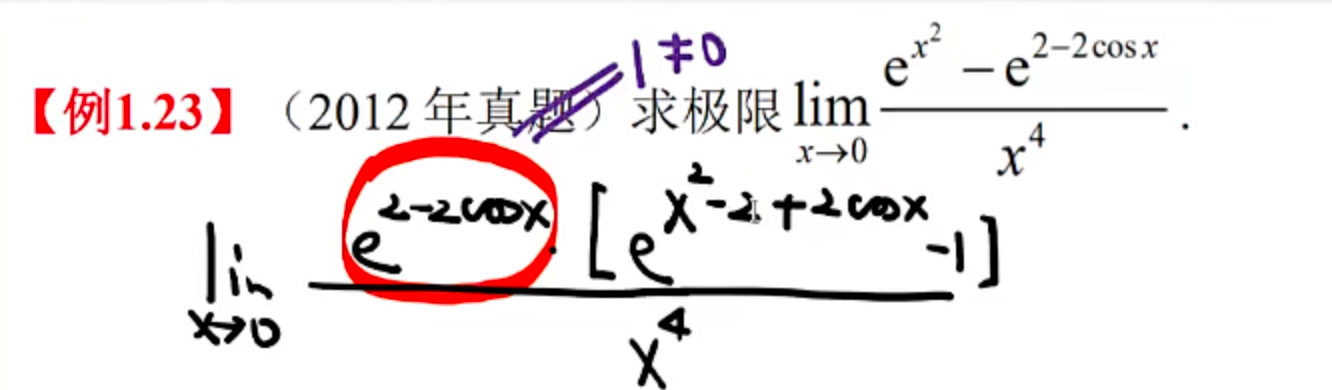 1≠0
【例1.23】（2012 年真题）求极限 lim x→0 (e^{x^2} − e^{2−2cos x}) / x^4 .
lim x→0 e^{2-2cosx} · [e^{x^2-2+2cosx} -1] / x^4